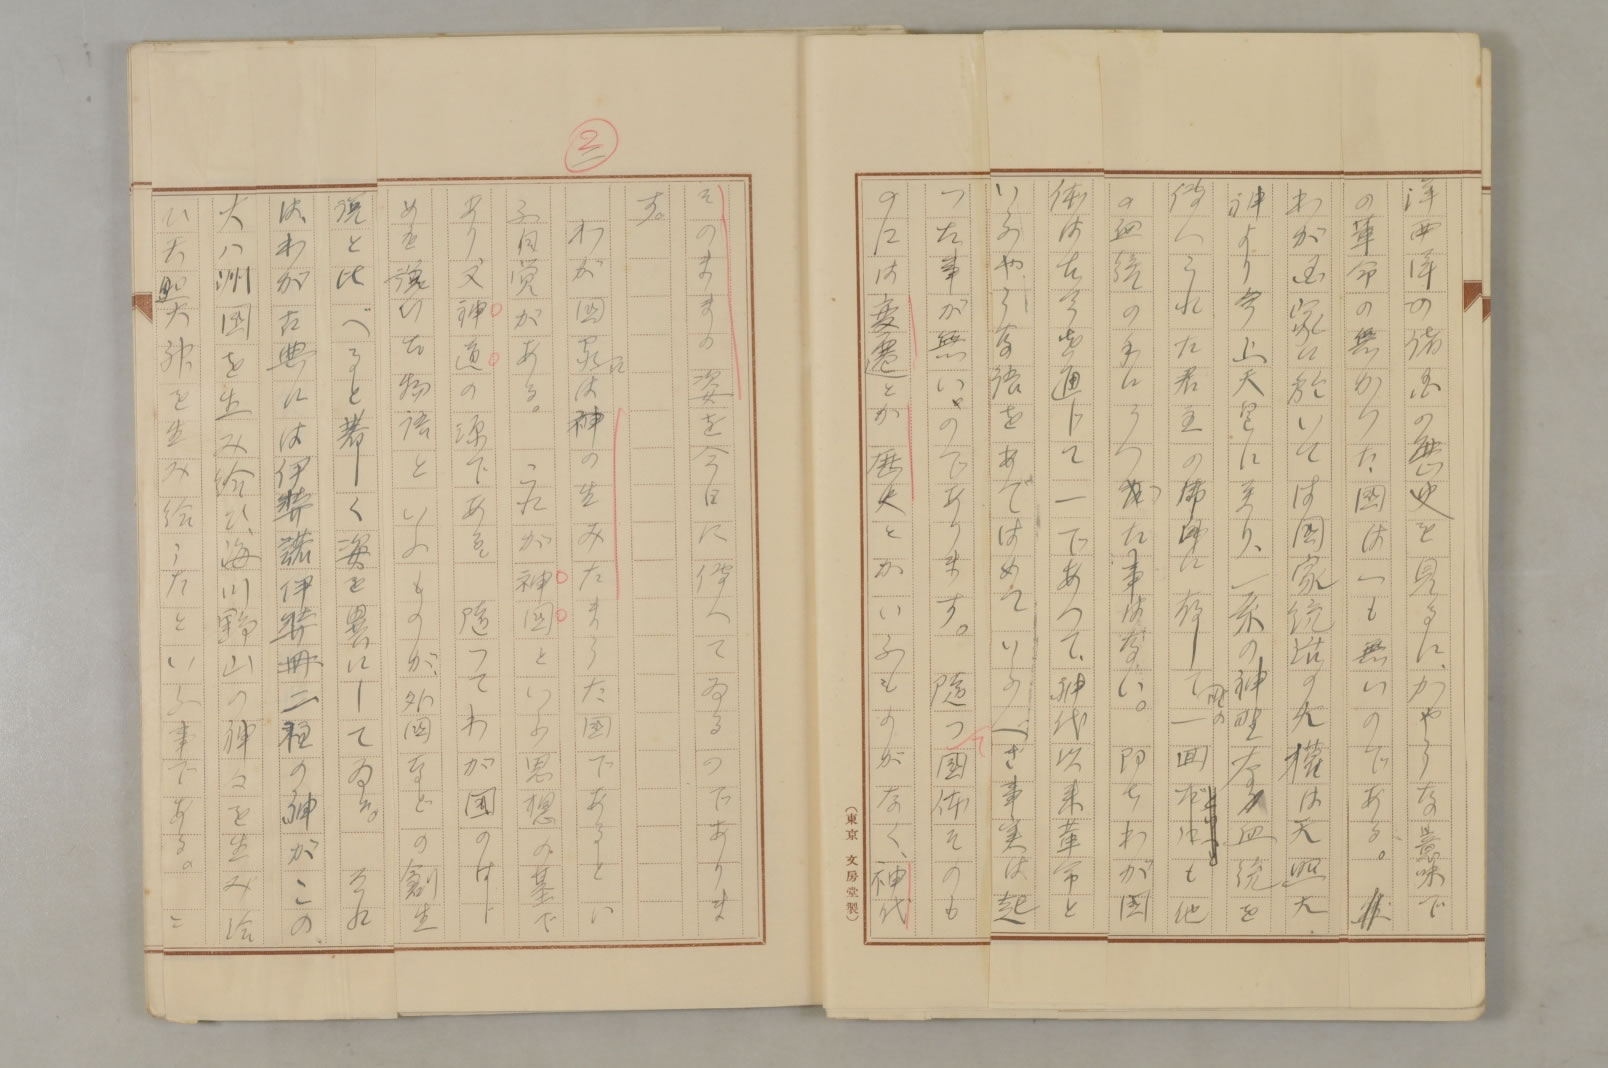 洋西洋の諸国の歴史を見るに、かやうな意味で
の革命の無かつた国は一も無いのである。
わが国家に於いては国家統治の大権は天照大
神より今上天皇に至り、一系の神聖な血統を
傳へられた君主の に存して一回だにも他
の血統の手にうつつた事はない。即ちわが国
体は古今を通じて一であつて、神代以来革命と
いふやうな語をあてはめていふべき事実は起
つた事が無いのであります。随つて国体そのも
のには変遷とか歴史とかいふものがなく、神代
(東京 文房堂製)
そのままの姿を今日に傳へてゐるのでありま
す。
2
わが国家は神の生みたまうた国であるとい
ふ自覚がある。これが神国といふ思想の基で
あり、又神道の源である 随つてわが国のはじ
めを語ひた物語といふものが、外国などの創生
説と比べると著しく姿を異にしてゐる。それ
は、わが古典には伊弉諾伊弉冊二柱の神がこの
大八洲国を生み給ひ、海川野山の神々を生み給
ひ天照大神を生み給うたといふ事である。こ